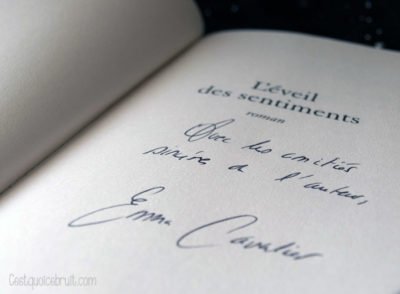 L'éveil
des sentiments
roman
Avec les amitiés
sincère de l'auteur,
Emma Cavalier
Cestquoicebruit.com